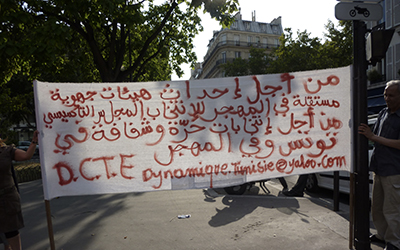 من أجل إحداث هيئات جهوية
مستقلة في المهجر للإنتخاب المجلس التأسيسي
من أجل إنتخابات حرّة وشفافة في
تونس وفي المهجر
D.C.T.E dynamique.tunisie@yahoo.com